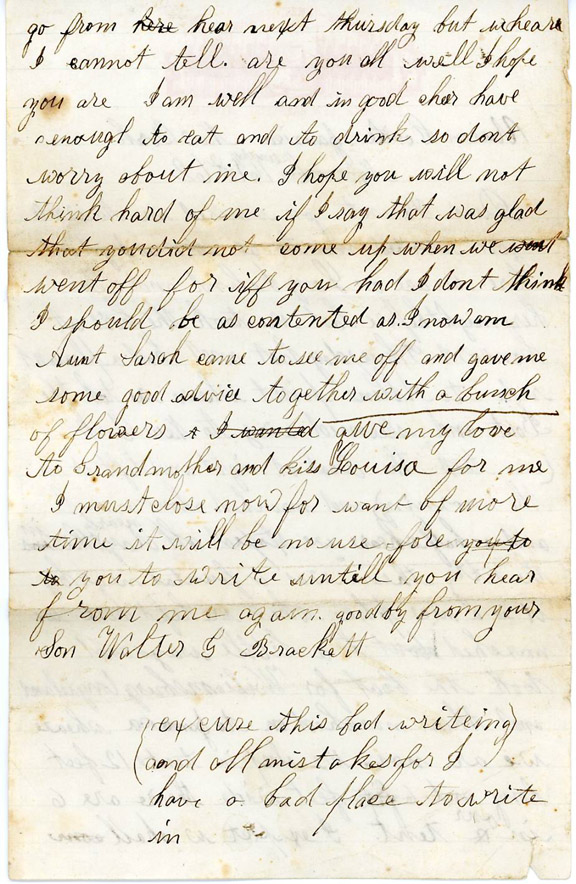 go from here hear next thursday but wheare
I cannot tell. are you all well I hope
you are I am well and in good cher have
enough to eat and to drink so dont
worry about me. I hope you will not
think hard of me if I say that was glad
that you did not come up when we went
went off for iff you had I dont think
I should be as contented as I now am
Aunt Sarah came to see me off and gave me
some good advice together with a bunch
of flowers & I wanted give my love
to Grandmother and kiss Louisa for me
I must close now for want of more
time it will be no use fore you to
to you to write untill you hear
from me again. goodby from your
Son Walter G Brackett
(excuse this bad writeing)
(and all mistakes for I
have a bad place to write
in